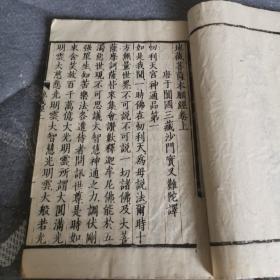 地藏菩薩本願經卷上
唐于闐國三藏沙門實叉難陀譯
忉利天宮神通品第一
如是我聞一時佛在忉利天為母說法爾時十
方無量世界不可說不可說一切諸佛及大菩
薩摩訶薩皆來集會讚歎釋迦牟尼佛能於五
濁惡世現不可思議大智慧神通之力調伏剛
強眾生知苦樂法各遣侍者問訊世尊是時如
來含笑放百千萬億大光明雲所謂大圓滿光
明雲大慈悲光明雲大智慧光明雲大般若光